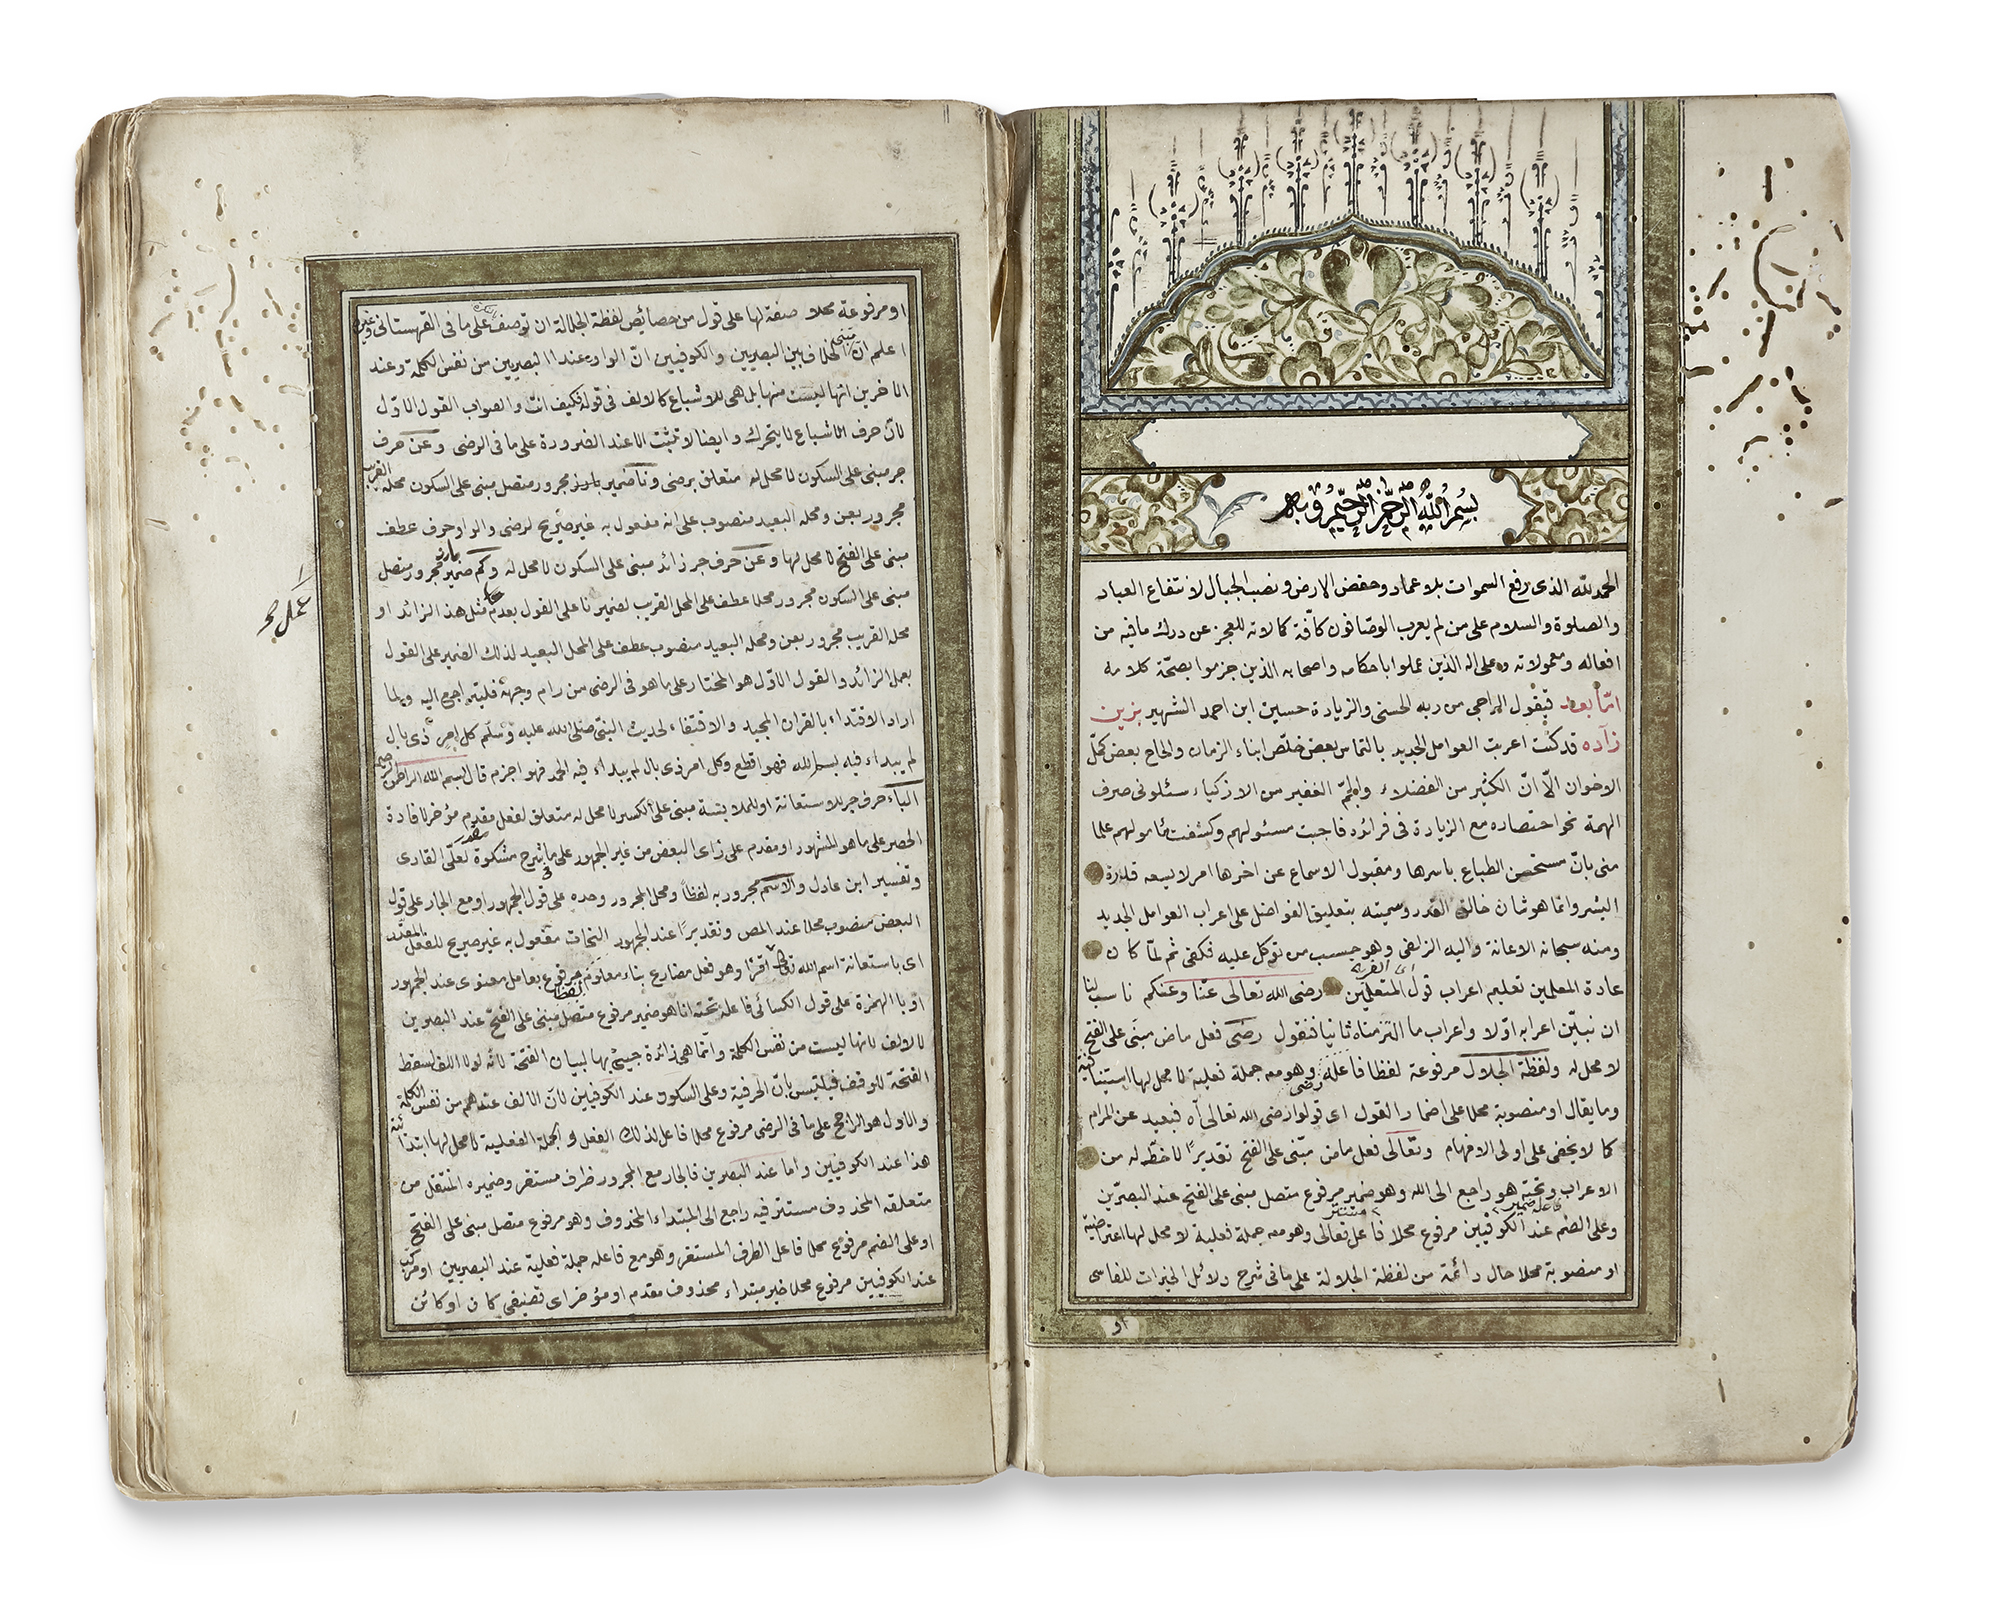 بسم الله الرحمن الرحيم وبه
الحمد لله الذى رفع السموات بلا عماد وخفض الارض ونصب الجبال لانتفاع العباد
والصلوة والسلام على من لم يعرب الوصافون كافة كمالاته للعجز عن درك ما فيه من
افعاله ومعمولاته وعلى اله الذين عملوا باحكامه واصحابه الذين جزموا بصحة كلامه
امّا بعد فيقول الراجى من ربه الحسنى والزيادة حسين ابن احمد الشهير بزين
زاده قد كنت اعربت العوامل الجديد بالتماس بعض خلّص ابناء الزمان والحاح بعض كمّل
الاخوان الّا انّ الكثير من الفضلاء والجمّ الغفير من الاذكياء سئلونى صرف
الهمة نحو اختصاره مع الزيادة فى فرائده فاجبت مسئولهم وكشفت مأمولهم علما
منى بانّ مستحسن الطباع باسرها ومقبول الاسماع عن اخرها امر لا يسعه قدرة
البشر وانما هو شان خالق القدر وسميته بتعليق الفواضل على اعراب العوامل الجديد
ومنه سبحانه الاعانة واليه الزلفى وهو حسب من توكل عليه فكفى ثم لمّا كان
عادة المعلمين تعليم اعراب قول المتعلمين رضى الله تعالى عنّا وعنكم ناسب لنا
اى القرية
ان نبيّن اعرابه اوّلا واعراب ما التزمناه ثانيا فنقول رضى فعل ماض مبنى على الفتح
لا محل له ولفظة الجلال مرفوعة لفظا فاعله وهو معه جملة فعلية لا محل لها استينافية
رضى
وما يقال او منصوبة محلا على اضمار القول اى قولوا رضى الله تعالى آه فبعيد عن المرام
كما لا يخفى على اولى الافهام وتعالى فعل ماض مبنى على الفتح تقديرا لا حظّ له من
الاعراب وتحته هو راجع الى الله وهو ضمير مرفوع متصل مبنى على الفتح عند البصريين
وعلى الضم عند الكوفيين مرفوع محلا فاعل تعالى وهو معه جملة فعلية لا محل لها اعتراضية
او منصوبة محلا حال دائمة من لفظة الجلالة على ما فى شرح دلائل الخيرات للفاسى
او
او مرفوعة محلا صفة لها على قول من خصائص لفظة الجلالة ان توصف على ما فى القهستانى وغيره
اعلم ان مبنى الخلاف بين البصريين والكوفيين انّ الواو عند البصريين من نفس الكلمة وعند
الاخرين انها ليست منها بل هى للاشباع كالالف فى قوله فكيف انت والصواب القول الاوّل
لانّ حرف الاشباع لا يتحرك وايضا لا تثبت الا عند الضرورة على ما فى الرضى وعن حرف
جر مبنى على السكون لا محل له متعلق برضى ونا ضمير بارز مجرور متصل مبنى على السكون محله القريب
مجرور بعن ومحله البعيد منصوب على انه مفعول به غير صريح لرضى والواو حرف عطف
مبنى على الفتح لا محل لها وعن حرف جر زائد مبنى على السكون لا محل له وكم ضمير بارز مجرور متصل
مبنى على السكون مجرور محلا عطف على المحل القريب لضمير نا على القول بعدم عمل مثل هذا الزائد او
عمل صح
محله القريب مجرور بعن ومحله البعيد منصوب عطف على المحل البعيد لذلك الضمير على القول
بعمل الزائد والقول الاوّل هو المختار على ما هو فى الرضى من رام وجهه فليتراجع اليه ولما
اراد الاقتداء بالقران المجيد والاقتفاء لحديث النبىّ صلى الله عليه وسلّم كل امر ذى بال
لم يبداء فيه بسم الله فهو اقطع وكل امر ذى بال لم يبداء فيه الحمد فهو اجزم قال بسم الله الرحمن الرحيم
الباء حرف جر للاستعانة او للملابسة مبنى على الكسر لا محل له متعلق لفعل مقدر مؤخر لافادة
الحصر على ما هو المشهور او مقدم على راى البعض من غير الجمهور على ما شرح مشكوة لعلىّ القارى
وتفسير ابن عادل والاسم مجرور به لفظا ومحل المجرور وحده على قول الجمهور او مع الجار على قول
البعض منصوب محلا عند المص وتقديرا عند الجمهور النحات مفعول به غير صريح للفعل المقدّر
اى باستعانة اسم الله تعالى اقرأ وهو فعل مضارع بناء معلوم مرفوع لفظا بعامل معنوى عند الجمهور
او بالهمزة على قول الكسائى فاعله تحته انا هو ضمير مرفوع متصل مبنى على الفتح عند البصريين
لا الالف لانها ليست من نفس الكلمة وانما هى زائدة جيئ بها لبيان الفتحة لانه لولا الالف لسقط
الفتحة للوقف فيلتبس بانّ الحرفية وعلى السكون عند الكوفيين لانّ الالف عندهم من نفس الكلمة
والاول هو الراجح على ما فى الرضى مرفوع محلا فاعل لذلك الفعل والجملة الفعلية لا محل لها ابتدائية
هذا عند الكوفيين واما عند البصريين فالجار مع المجرور ظرف مستقر وضميره المنتقل من
متعلقه المحذوف مستتر فيه راجع الى المبتداء المحذوف وهو مرفوع متصل مبنى على الفتح
او على الضم مرفوع محلا فاعل الظرف المستقر وهو مع فاعله جملة فعلية عند البصريين او مركب
عند الكوفيين مرفوع محلا خبر مبتداء محذوف مقدم او مؤخر اى تصنيفى كان او كائن